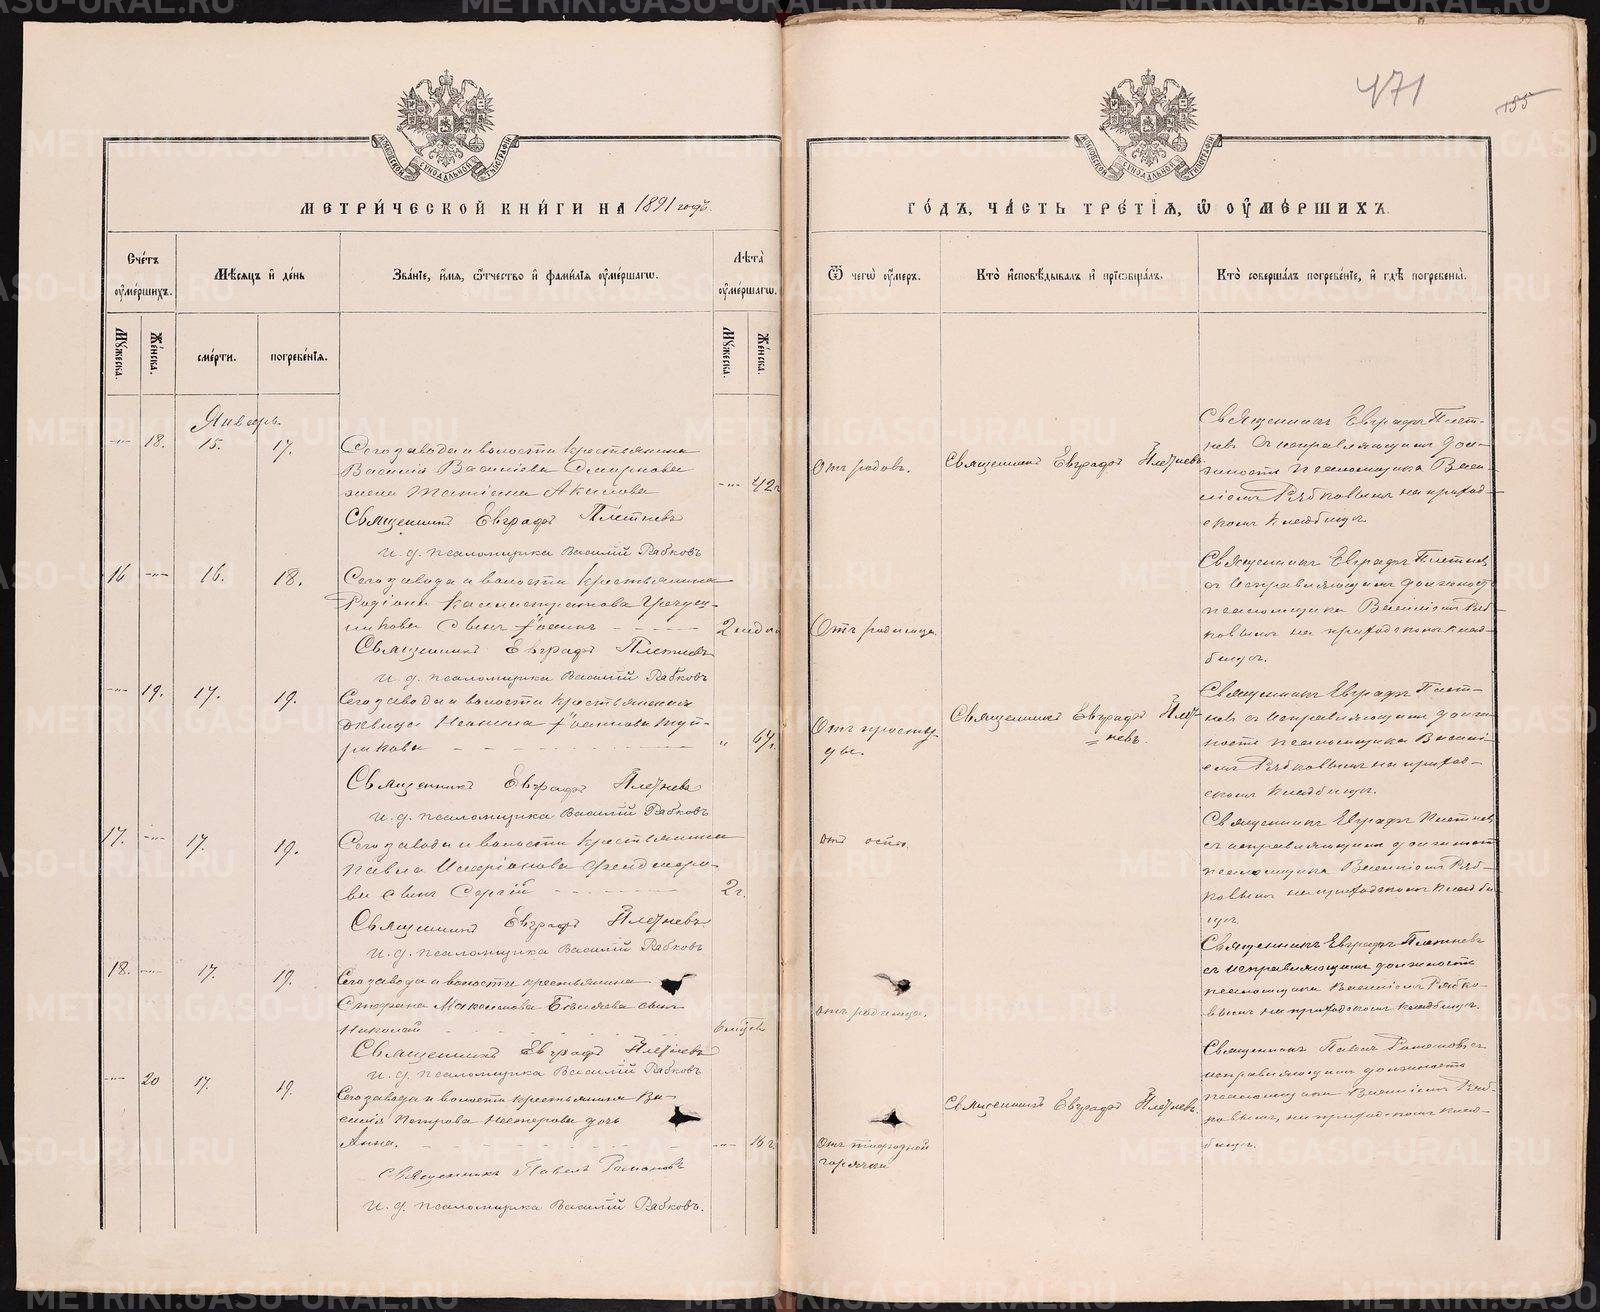 471
155
МЕТРИ́ЧЕСКОЙ КНИ́ГИ НА 1891 годъ.
ГО́ДЪ, ЧА́СТЬ ТРЕ́ТІЯ, Ѡ҆ ОУ҆МЕ́РШИХЪ.
Сче́тъ оу҆ме́ршихъ.
Мѣ́сяцъ и҆ де́нь
Зва́ніе, и҆́мя, ѻ҆́тчество и҆ фами́лія оу҆ме́ршагѡ.
Лѣ́та оу҆ме́ршагѡ.
Ѿ чегѡ̀ оу҆́меръ.
Кто̀ и҆сповѣ́дывалъ и҆ прїѡбща́лъ.
Кто̀ соверша́лъ погребе́ніе, и҆ гдѣ̀ погребены̀.
Му́жеска.
Же́нска.
сме́рти.
погребе́нія.
Му́жеска.
Же́нска.
Январь.
18. 15. 17. Сего завода и волости крестьянина
Василія Васильева Смирнова
жена Татіана Акилова 42 г
Священникъ Евграфъ Плетневъ
И. д. псаломщика Василій Рябковъ
Отъ родовъ.
Священникъ Евграфъ Плетневъ
Священникъ Евграфъ Плет-
невъ съ исправляющимъ дол-
жность псаломщика Васи-
ліемъ Рябковымъ на приход-
скомъ кладбищѣ
16 16. 18. Сего завода и волости крестьянина
Родіона Каллистратова
сынъ 2 недѣли
Священникъ Евграфъ Плетневъ
И. д. псаломщика Василій Рябковъ
Отъ родимца.
Священникъ Евграфъ Плетневъ
съ исправляющимъ должность
псаломщика Василіемъ Ряб-
ковымъ на приходскомъ клад-
бищѣ.
19. 17. 19. Сего завода и волости крестьянская
дѣвица
67 г.
Священникъ Евграфъ Плетневъ
И. д. псаломщика Василій Рябковъ
Отъ просту-
ды.
Священникъ Евграфъ Плет-
невъ.
Священникъ Евграфъ Плет-
невъ съ исправляющимъ долж-
ность псаломщика Васи-
емъ Рябковымъ на приход-
скомъ кладбищѣ.
17. 17. 19. Сего завода и волости крестьянина
Павла
сынъ Сергій 2 г.
Священникъ Евграфъ Плетневъ
И. д. псаломщика Василій Рябковъ
отъ оспы.
Священникъ Евграфъ Плетневъ
съ исправляющимъ должность
псаломщика Василіемъ Ряб-
ковымъ на приходскомъ кладби-
щѣ
18. 17. 19. Сего завода и волости крестьянина
Стефана Максимова Бѣляева сынъ
Николай
Священникъ Евграфъ Плетневъ
И. д. псаломщика Василій Рябковъ
отъ родимца.
Священникъ Евграфъ Плетневъ
съ исправляющимъ должность
псаломщика Василіемъ Рябко-
вымъ на приходскомъ кладбищѣ
20 17. 19. Сего завода и волости крестьянина Ва-
силія Петрова Нестерова дочь
Анна. 16 г
Священникъ Павелъ Романовъ
И. д. псаломщика Василій Рябковъ.
Отъ тифозной
горячки
Священникъ Евграфъ Плетневъ.
Священникъ Павелъ Романовъ съ
исправляющимъ должность
псаломщика Василіемъ Ряб-
ковымъ, на приходскомъ клад-
бищѣ.
METRIKI.GASO-URAL.RU